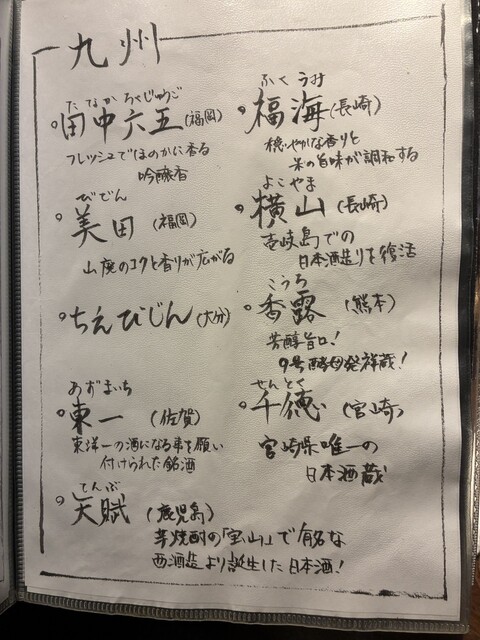 九州
たなか ろくじゅうご
田中六五(福岡)
フレッシュでほのかに香る
吟醸香
びでん
美田(福岡)
山廃のコクと香りが広がる
ちえびじん(大分)
あずまいち
東一(佐賀)
東洋一の酒になる事を願い
付けられた銘酒
てんぶ
天賦(鹿児島)
芋焼酎の「宝山」で有名な
西酒造より誕生した日本酒!
ふくうみ
福海(長崎)
穏やかな香りと
米の旨味が調和する
よこやま
横山(長崎)
壱岐島での
日本酒造りを復活
こうろ
香露(熊本)
芳醇旨口!
9号酵母発祥蔵!
せんとく
千徳(宮崎)
宮崎県唯一の
日本酒蔵